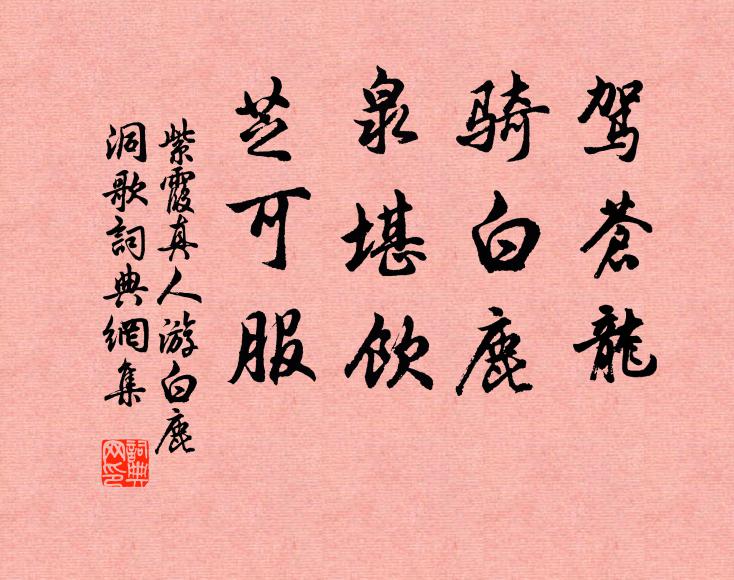 駕蒼龍
骑白鹿
泉堪飲
芝可服
紫霞真人游白鹿
洞歌詞典網集
詞典
网印